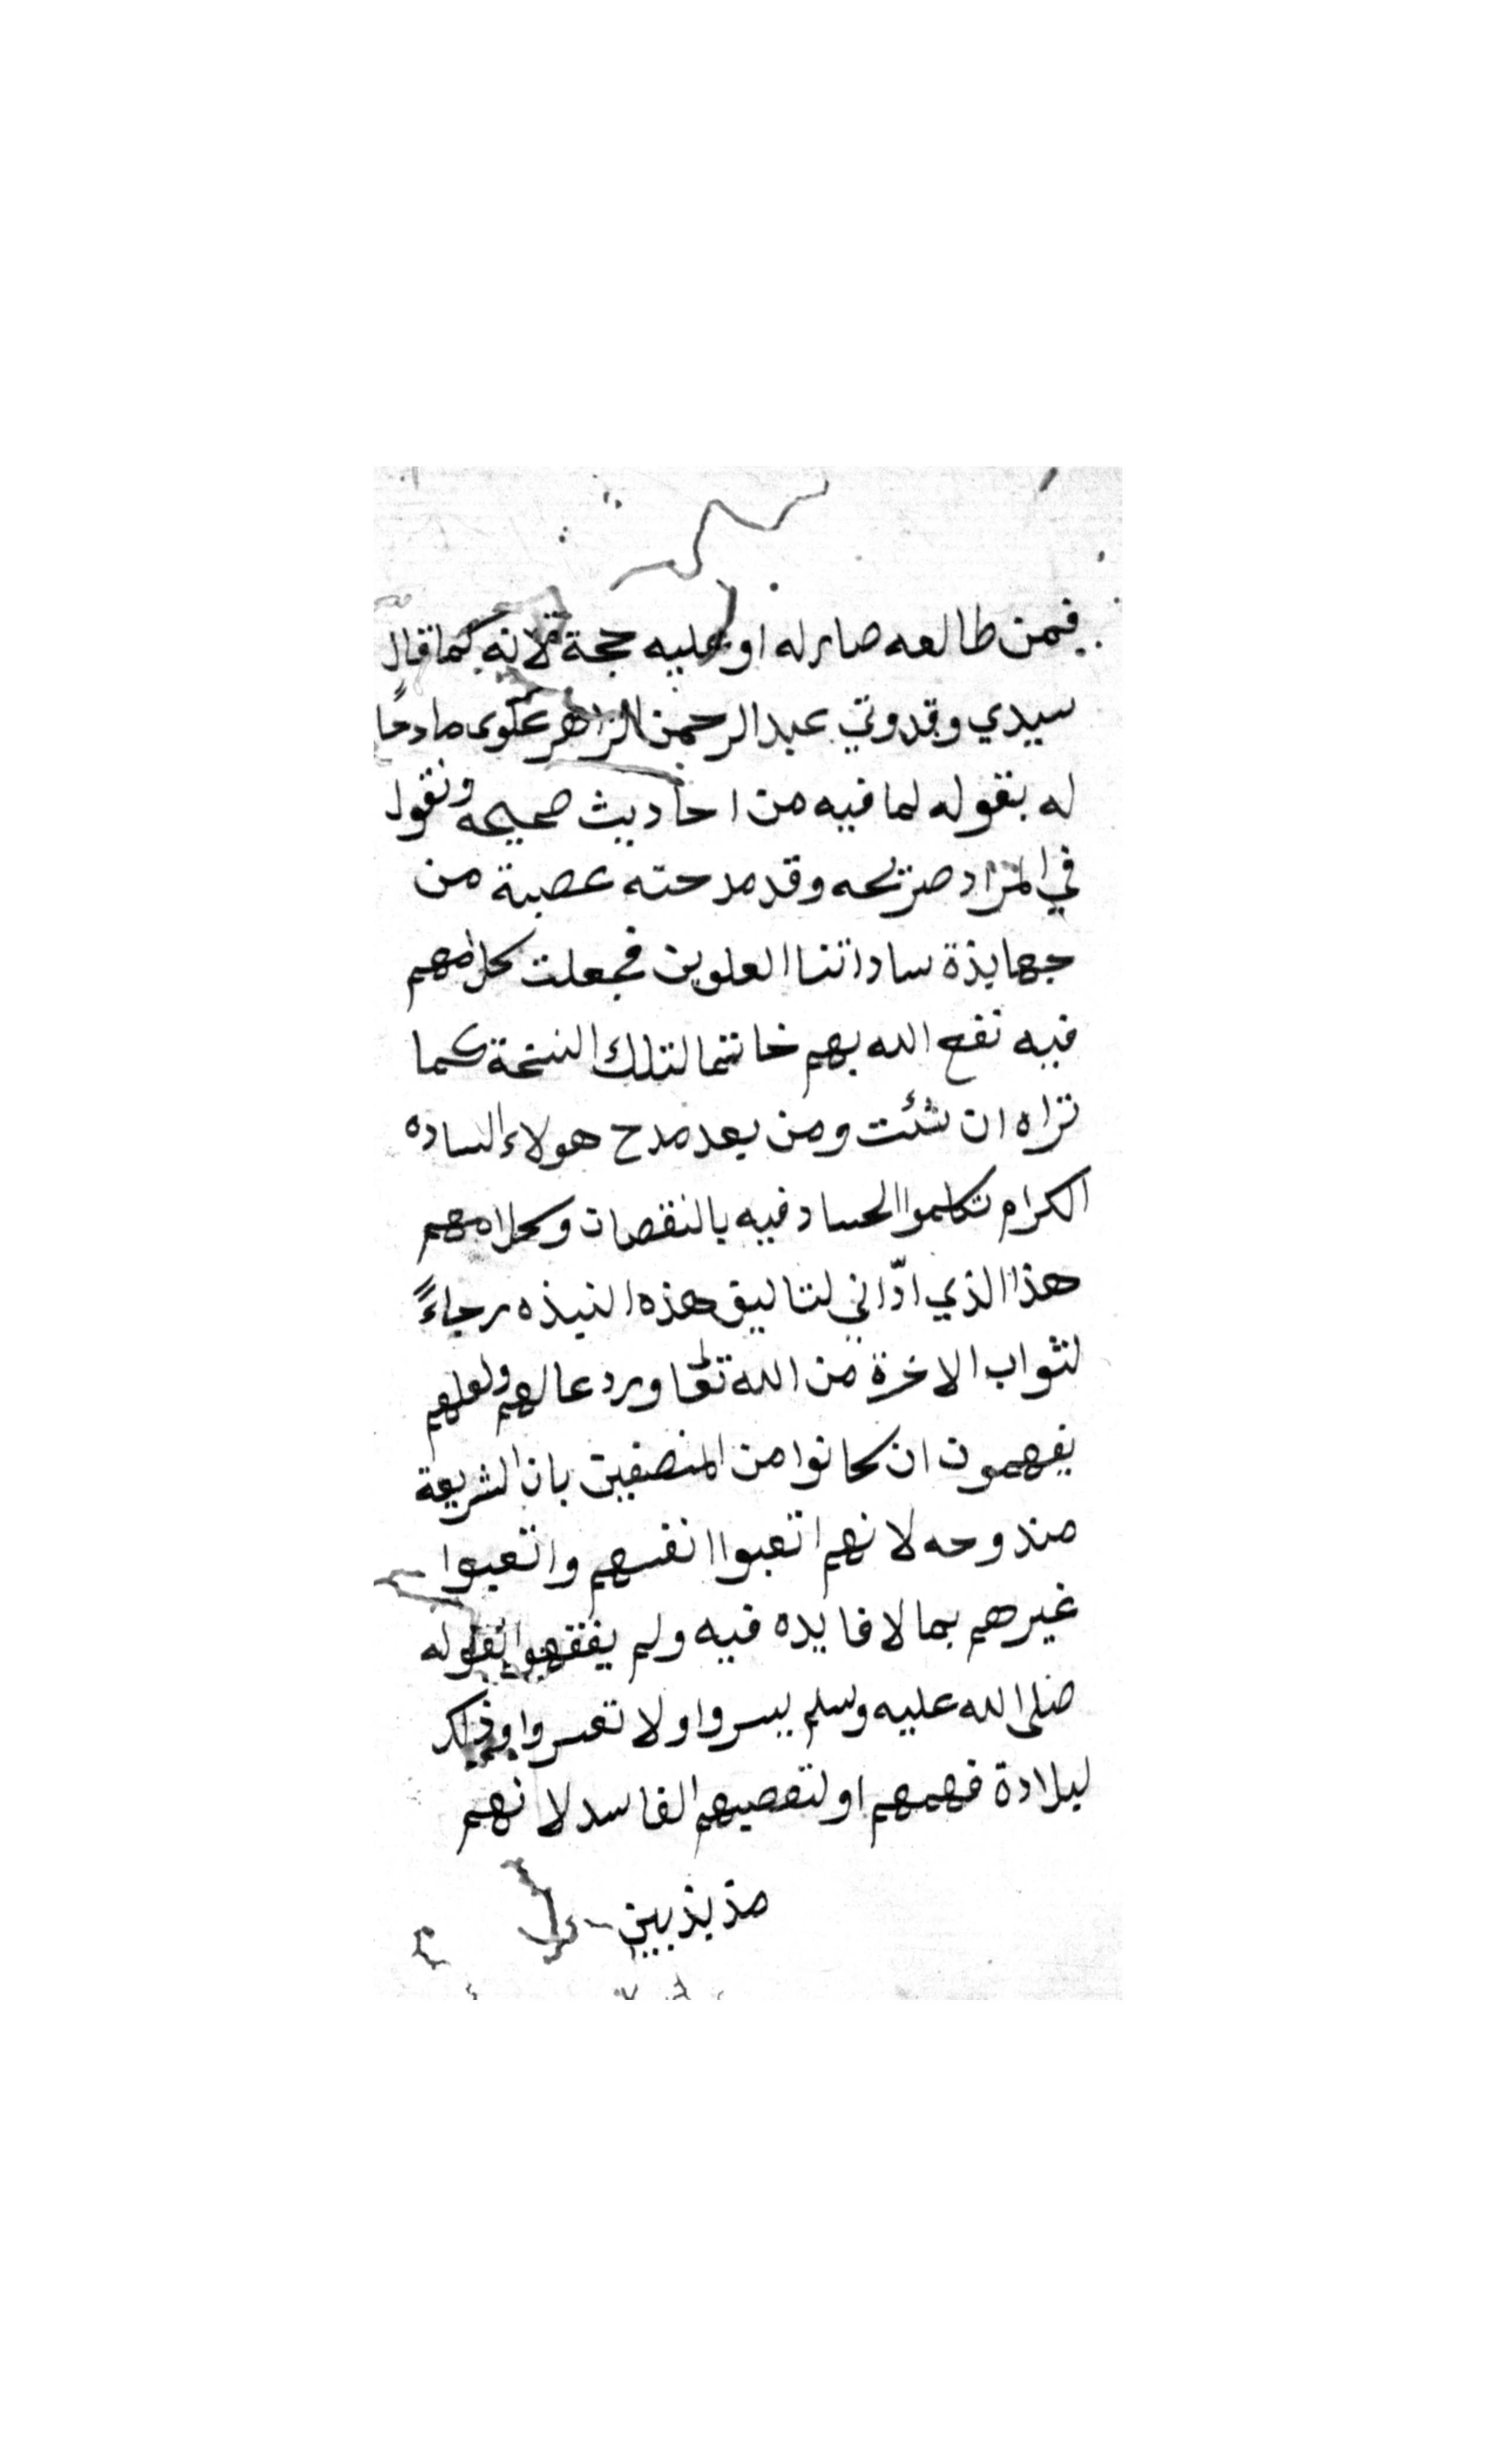 فمن طالعه صار له او عليه حجة لانه كما قال
سيدي وقدوتي عبد الرحمن الزاهر علوى مادحًا
له بقوله لما فيه من احاديث صحيحه ونقول
في المراد صريحه وقد مدحته عصبة من
جهابذة ساداتنا العلوين فجعلت كلامهم
فيه نفع الله بهم خاتما لتلك النسخة كما
تراه ان شئت ومن بعد مدح هولاء الساده
الكرام تكلموا الحساد فيه بالنقصان وكلامهم
هذا الذي ادّاني لتاليق هذه النبذه رجاءً
لثواب الاخرة من الله تعالى وردعا لهم ولعلهم
يفهمون ان كانوا من المنصفين بان الشريعة
مندوحه لانهم اتعبوا انفسهم واتعبوا
غيرهم بما لا فايده فيه ولم يفقهوا لقوله
صلى الله عليه وسلم يسروا ولا تعسروا وذلك
لبلادة فهمهم او لتعصبهم الفاسد لانهم
مذبذبين